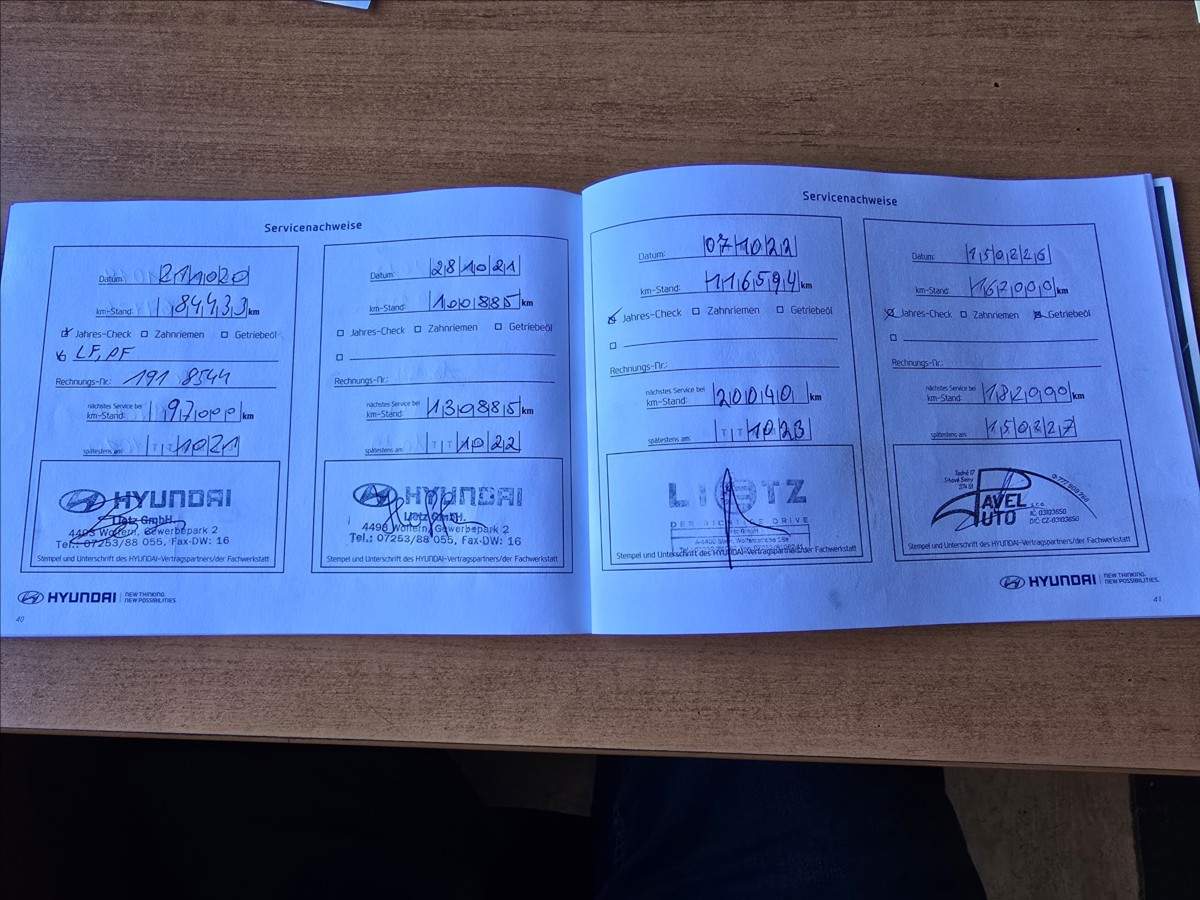 Servicenachweise
Datum: 211020
km-Stand: 84433 km
Jahres-Check Zahnriemen Getriebeöl
LF, PF
Rechnungs-Nr.: 191 8544
nächstes Service bei
km-Stand: 97000 km
spätestens am: TT1021
HYUNDAI
Lietz GmbH.
4493 Wolfern, Gewerbepark 2
Tel.: 07253/88 055, Fax-DW: 16
Stempel und Unterschrift des HYUNDAI-Vertragspartners/der Fachwerkstatt
HYUNDAI NEW THINKING.
NEW POSSIBILITIES.
40
Datum: 281021
km-Stand: 100885 km
Jahres-Check Zahnriemen Getriebeöl
Rechnungs-Nr.:
nächstes Service bei
km-Stand: 130885 km
spätestens am: TT1022
HYUNDAI
Lietz GmbH.
4493 Wolfern, Gewerbepark 2
Tel.: 07253/88 055, Fax-DW: 16
Stempel und Unterschrift des HYUNDAI-Vertragspartners/der Fachwerkstatt
Servicenachweise
Datum: 071022
km-Stand: 116594 km
Jahres-Check Zahnriemen Getriebeöl
Rechnungs-Nr.:
nächstes Service bei
km-Stand: 200040 km
spätestens am: TT1023
LIETZ
DRIVE
Stempel und Unterschrift des HYUNDAI-Vertragspartners/der Fachwerkstatt
Datum: 150226
km-Stand: 167000 km
Jahres-Check Zahnriemen Getriebeöl
Rechnungs-Nr.:
nächstes Service bei
km-Stand: 182000 km
spätestens am: 150227
PAVEL
AUTO s.r.o.
Stempel und Unterschrift des HYUNDAI-Vertragspartners/der Fachwerkstatt
HYUNDAI NEW THINKING.
NEW POSSIBILITIES.
41